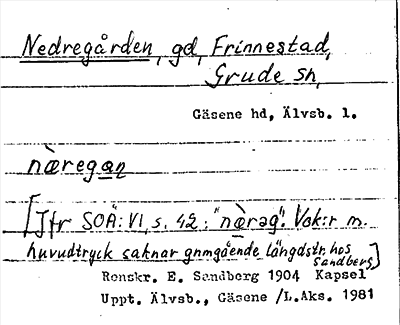 Nedregården, gd, Frinnestad,
Grude sn,
Gäsene hd, Älvsb. l.
næ̀regan
[Jfr SOÄ: VI, s. 42: "næ̀rəg". Vok:r m.
huvudtryck saknar gnmgående längdstr. hos
Sandberg,]
Renskr. E. Sandberg 1904 Kapsel
Uppt. Älvsb., Gäsene /L.Aks. 1981